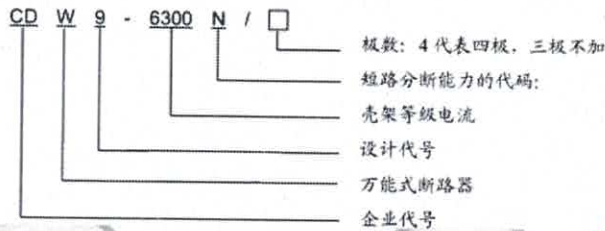 CD W 9 - 6300 N / □
极数：4代表四极，三极不加
短路分断能力的代码：
壳架等级电流
设计代号
万能式断路器
企业代号